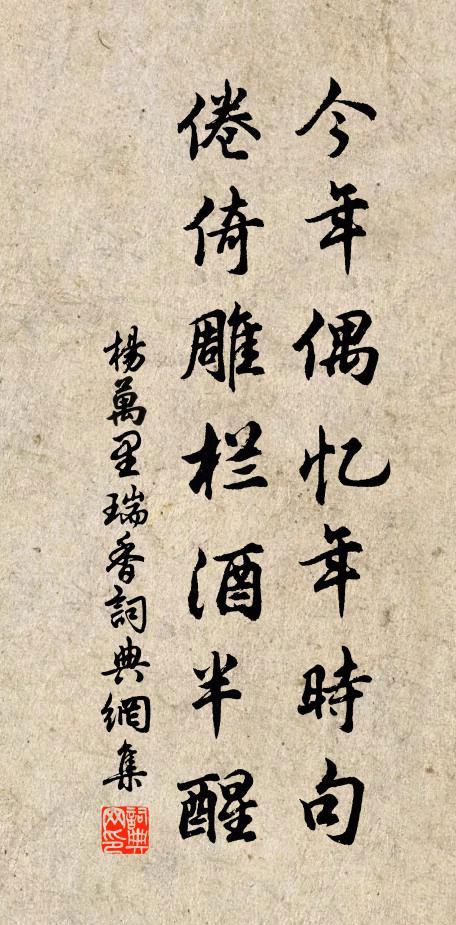 今年偶忆年時句
倦倚雕栏酒半醒
楊萬里瑞香詞典網集
詞典網印